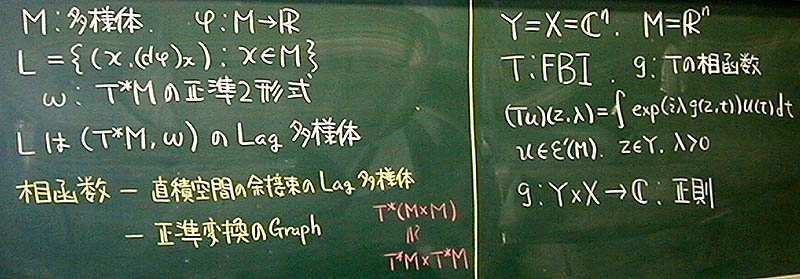 M:多様体. φ:M→ℝ
L={(x.(dφ)x):x∈M}
ω:T*Mの正準2形式
Lは(T*M,ω)のLag多様体
相函数－直積空間の余接束のLag多様体
－正準変換のGraph
T*(M×M)
≅
T*M×T*M
Y=X=ℂⁿ. M=ℝⁿ
T:FBI. g:Tの相函数
(Tu)(z,λ)=∫exp(iλg(z,t))u(t)dt
u∈ε'(M). z∈Y. λ>0
g:Y×X→ℂ:正則